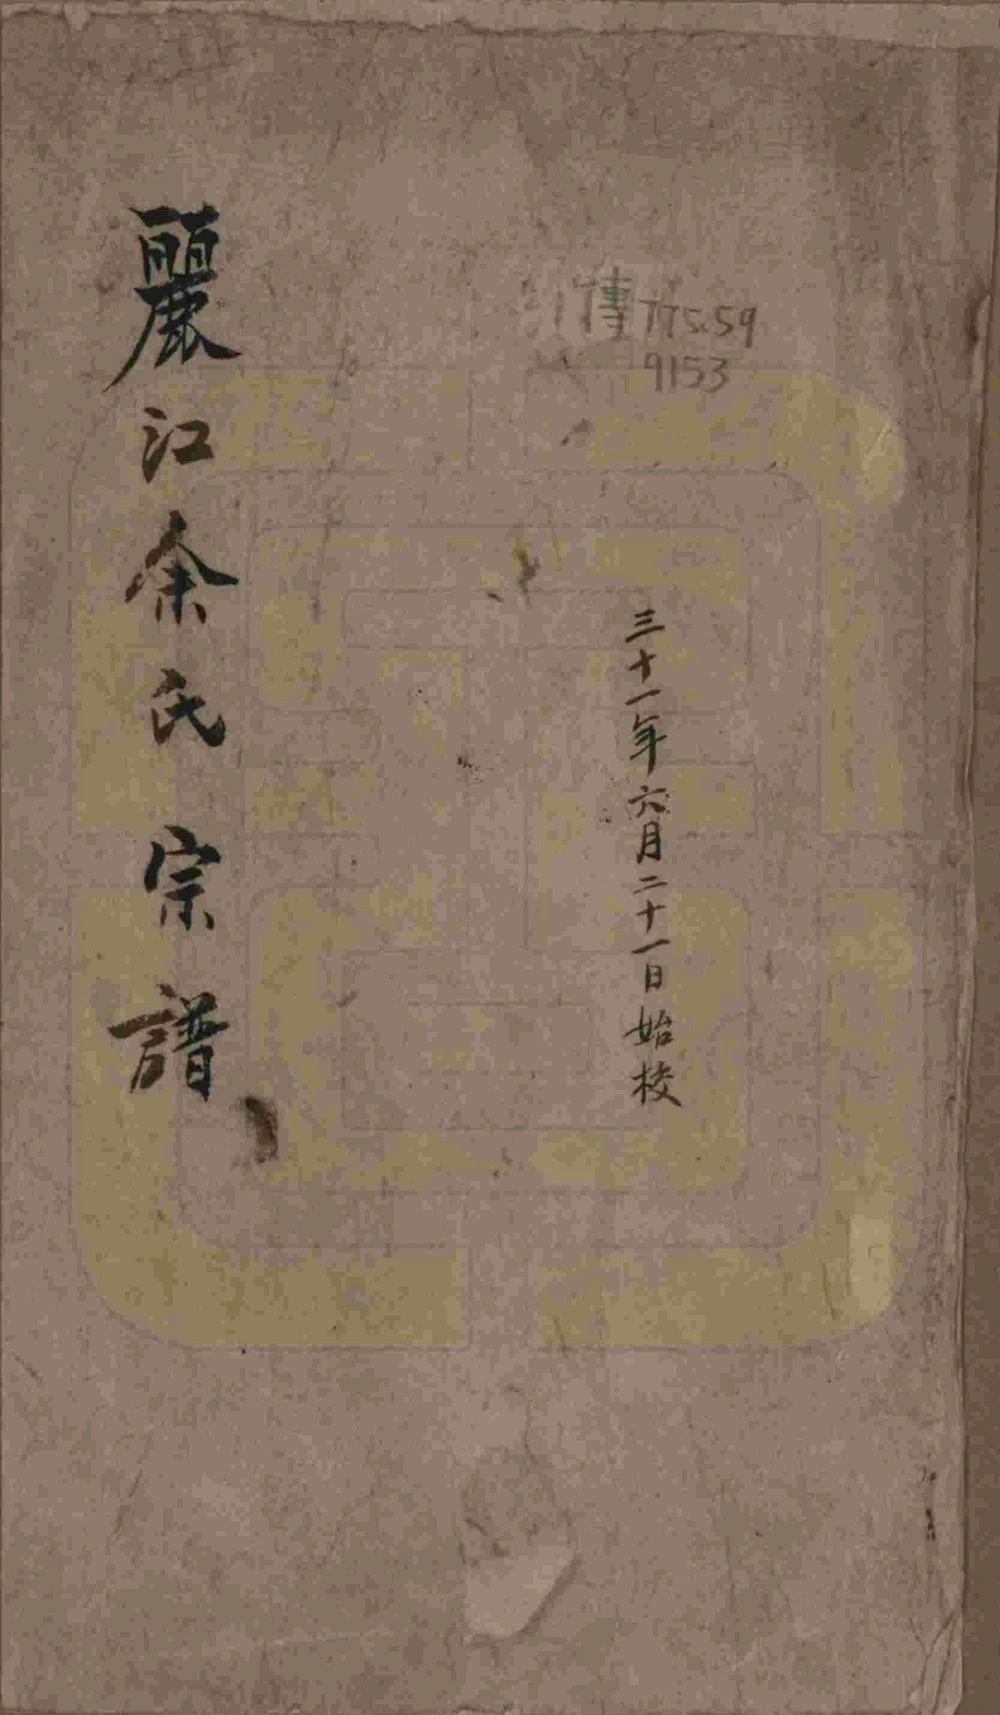 傳 775.59
9153
三十一年六月二十一日始校
麗江余氏宗譜